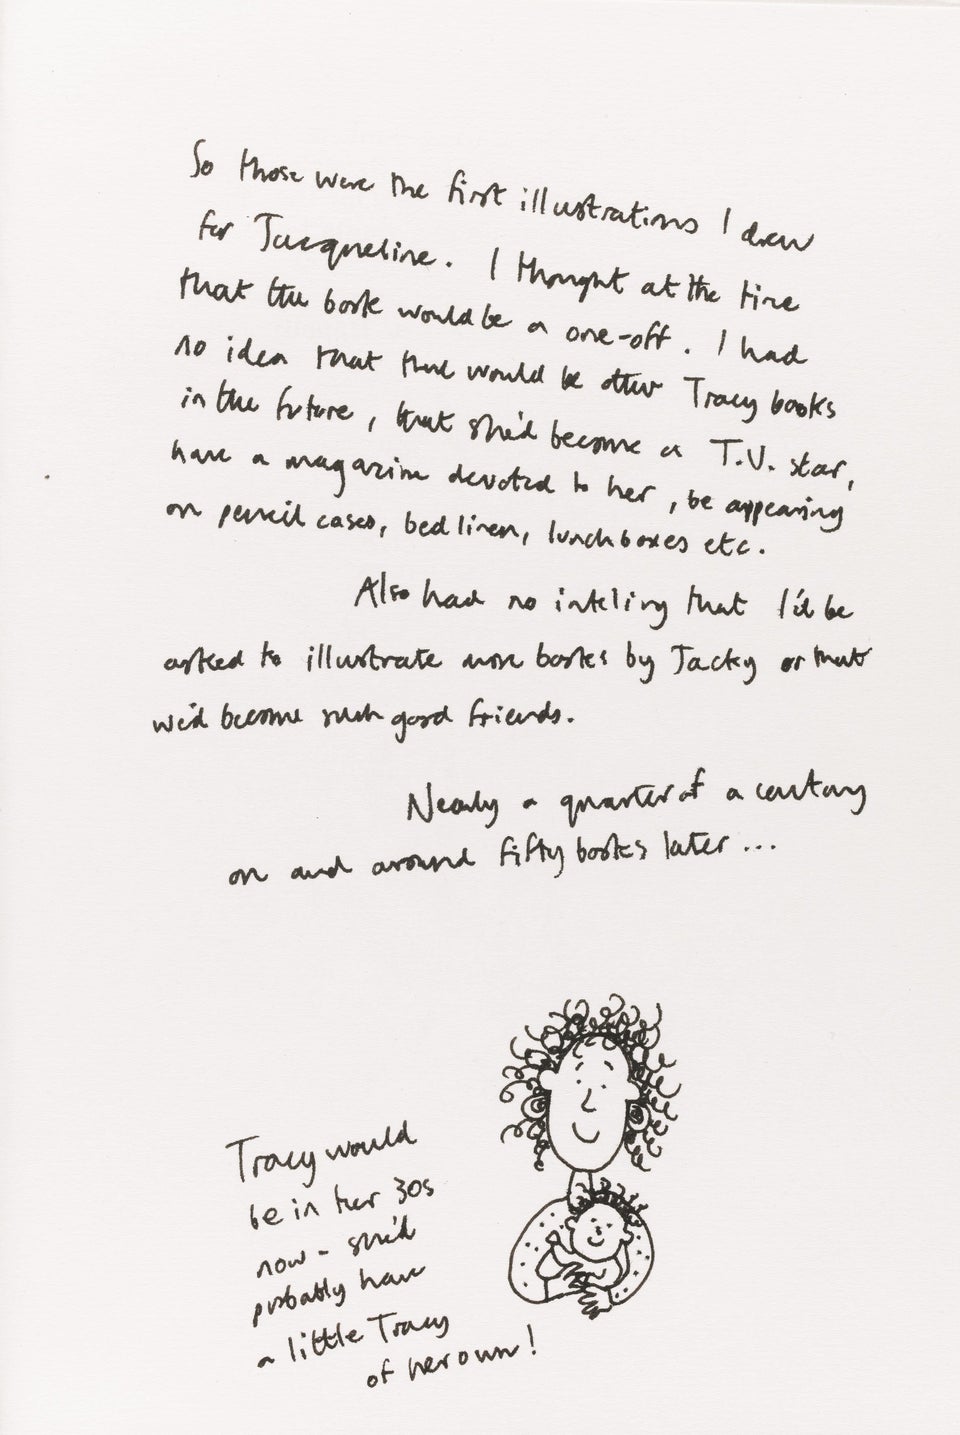 So those were the first illustrations I drew
for Jacqueline. I thought at the time
that the book would be a one-off. I had
no idea that there would be other Tracy books
in the future, that she'd become a T.V. star,
have a magazine devoted to her, be appearing
on pencil cases, bed linen, lunchboxes etc.
Also had no inkling that I'd be
asked to illustrate more books by Jacky or that
we'd become such good friends.
Nearly a quarter of a century
on and around fifty books later...
Tracy would
be in her 30s
now - she'd
probably have
a little Tracy
of her own!